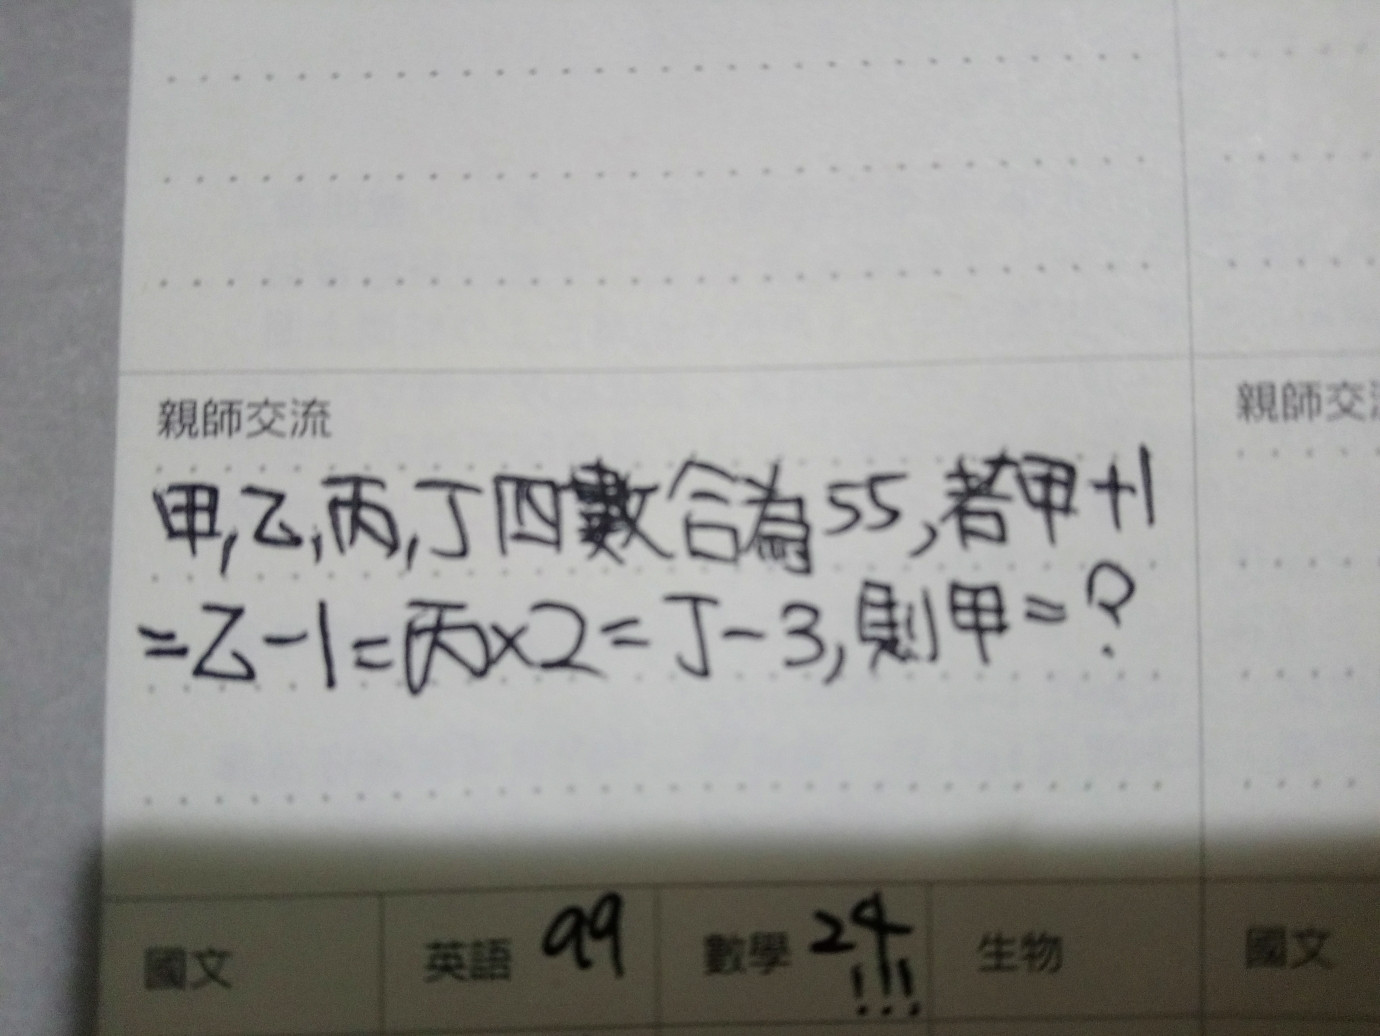 親師交流
親師交
甲,乙,丙,丁四數合為55,若甲+1
=乙-1=丙×2=丁-3,則甲=?
國文
英語 99
數學 24!!!
生物
國文